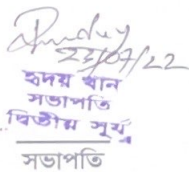 23/07/22
হৃদয় খান
সভাপতি
দ্বিতীয় সূর্য্য
সভাপতি